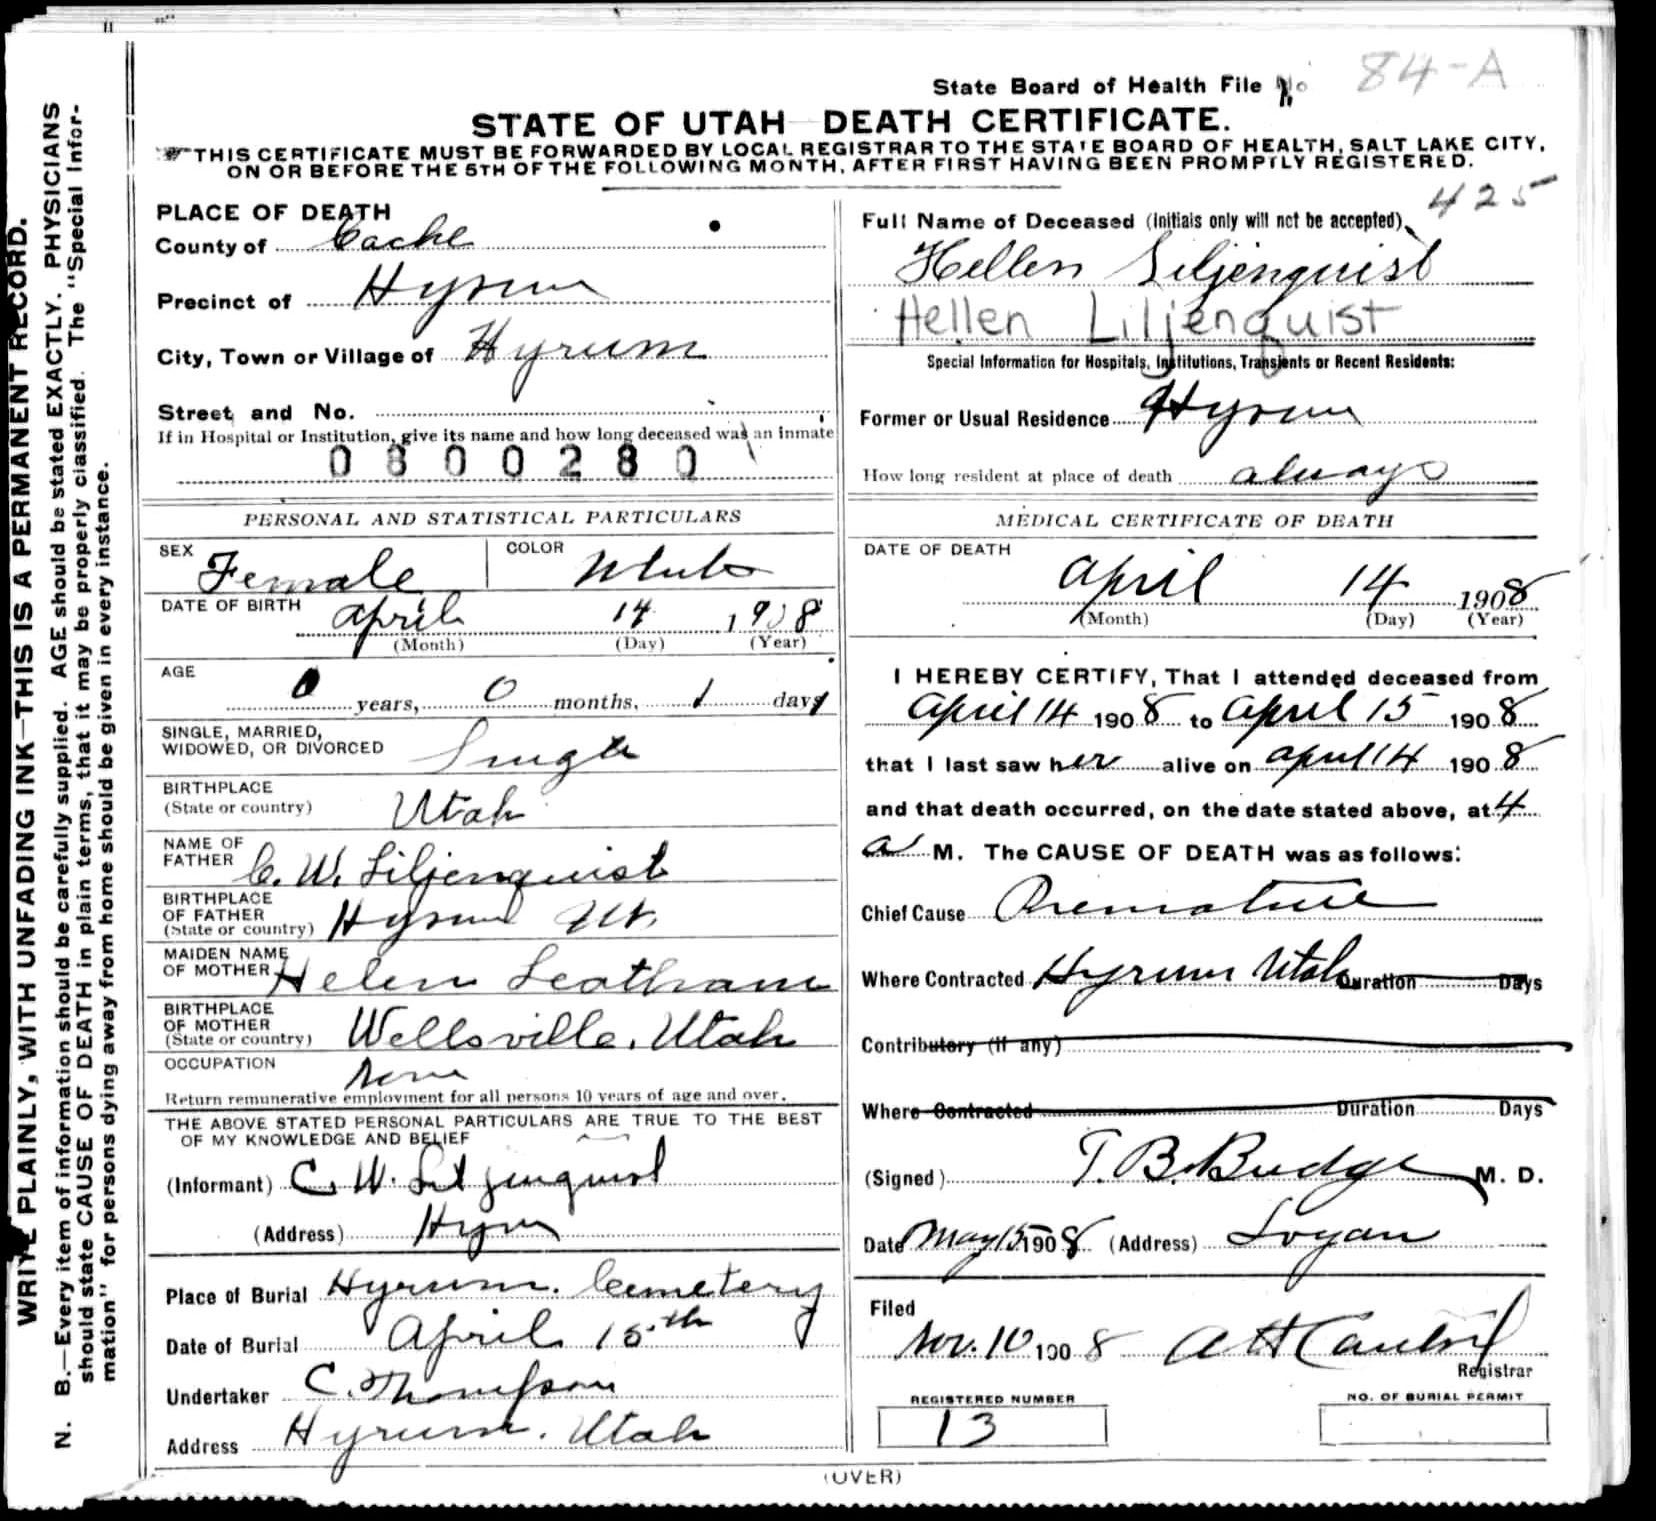 84-A
State Board of Health File No
STATE OF UTAH DEATH CERTIFICATE.
THIS CERTIFICATE MUST BE FORWARDED BY LOCAL REGISTRAR TO THE STATE BOARD OF HEALTH, SALT LAKE CITY,
ON OR BEFORE THE 5TH OF THE FOLLOWING MONTH, AFTER FIRST HAVING BEEN PROMPTLY REGISTERED.
WRITE PLAINLY, WITH UNFADING INK—THIS IS A PERMANENT RECORD.
N. B.—Every item of information should be carefully supplied. AGE should be stated EXACTLY. PHYSICIANS
should state CAUSE OF DEATH in plain terms, that it may be properly classified. The "Special Infor-
mation" for persons dying away from home should be given in every instance.
PLACE OF DEATH
County of Cache
Precinct of Hyrum
City, Town or Village of Hyrum
Street and No.
If in Hospital or Institution, give its name and how long deceased was an inmate
0800280
PERSONAL AND STATISTICAL PARTICULARS
SEX Female COLOR White
DATE OF BIRTH April 14 1908
(Month) (Day) (Year)
AGE
0 years, 0 months, 1 days
SINGLE, MARRIED,
WIDOWED, OR DIVORCED Single
BIRTHPLACE
(State or country) Utah
NAME OF
FATHER C. W. Liljenquist
BIRTHPLACE
OF FATHER
(State or country) Hyrum Ut.
MAIDEN NAME
OF MOTHER Helen Leatham
BIRTHPLACE
OF MOTHER
(State or country) Wellsville, Utah
OCCUPATION none
Return remunerative employment for all persons 10 years of age and over.
THE ABOVE STATED PERSONAL PARTICULARS ARE TRUE TO THE BEST
OF MY KNOWLEDGE AND BELIEF
(Informant) C. W. Liljenquist
(Address) Hyrum
Place of Burial Hyrum. Cemetery
Date of Burial April 15th
Undertaker C. Thompson
Address Hyrum. Utah
425
Full Name of Deceased (Initials only will not be accepted)
Hellen Liljenquist
Hellen Liljenquist
Special Information for Hospitals, Institutions, Transients or Recent Residents:
Former or Usual Residence Hyrum
How long resident at place of death always
MEDICAL CERTIFICATE OF DEATH
DATE OF DEATH
April 14 1908
(Month) (Day) (Year)
I HEREBY CERTIFY, That I attended deceased from
April 14 1908 to April 15 1908
that I last saw her alive on April 14 1908
and that death occurred, on the date stated above, at 4
a M. The CAUSE OF DEATH was as follows:
Chief Cause Premature
Where Contracted Hyrum Utah Duration Days
Contributory (if any)
Where Contracted Duration Days
(Signed) T. B. Budge M. D.
Date May 15 1908 (Address) Logan
Filed
Nov. 10 1908 A H
Registrar
REGISTERED NUMBER
13
NO. OF BURIAL PERMIT
(OVER)